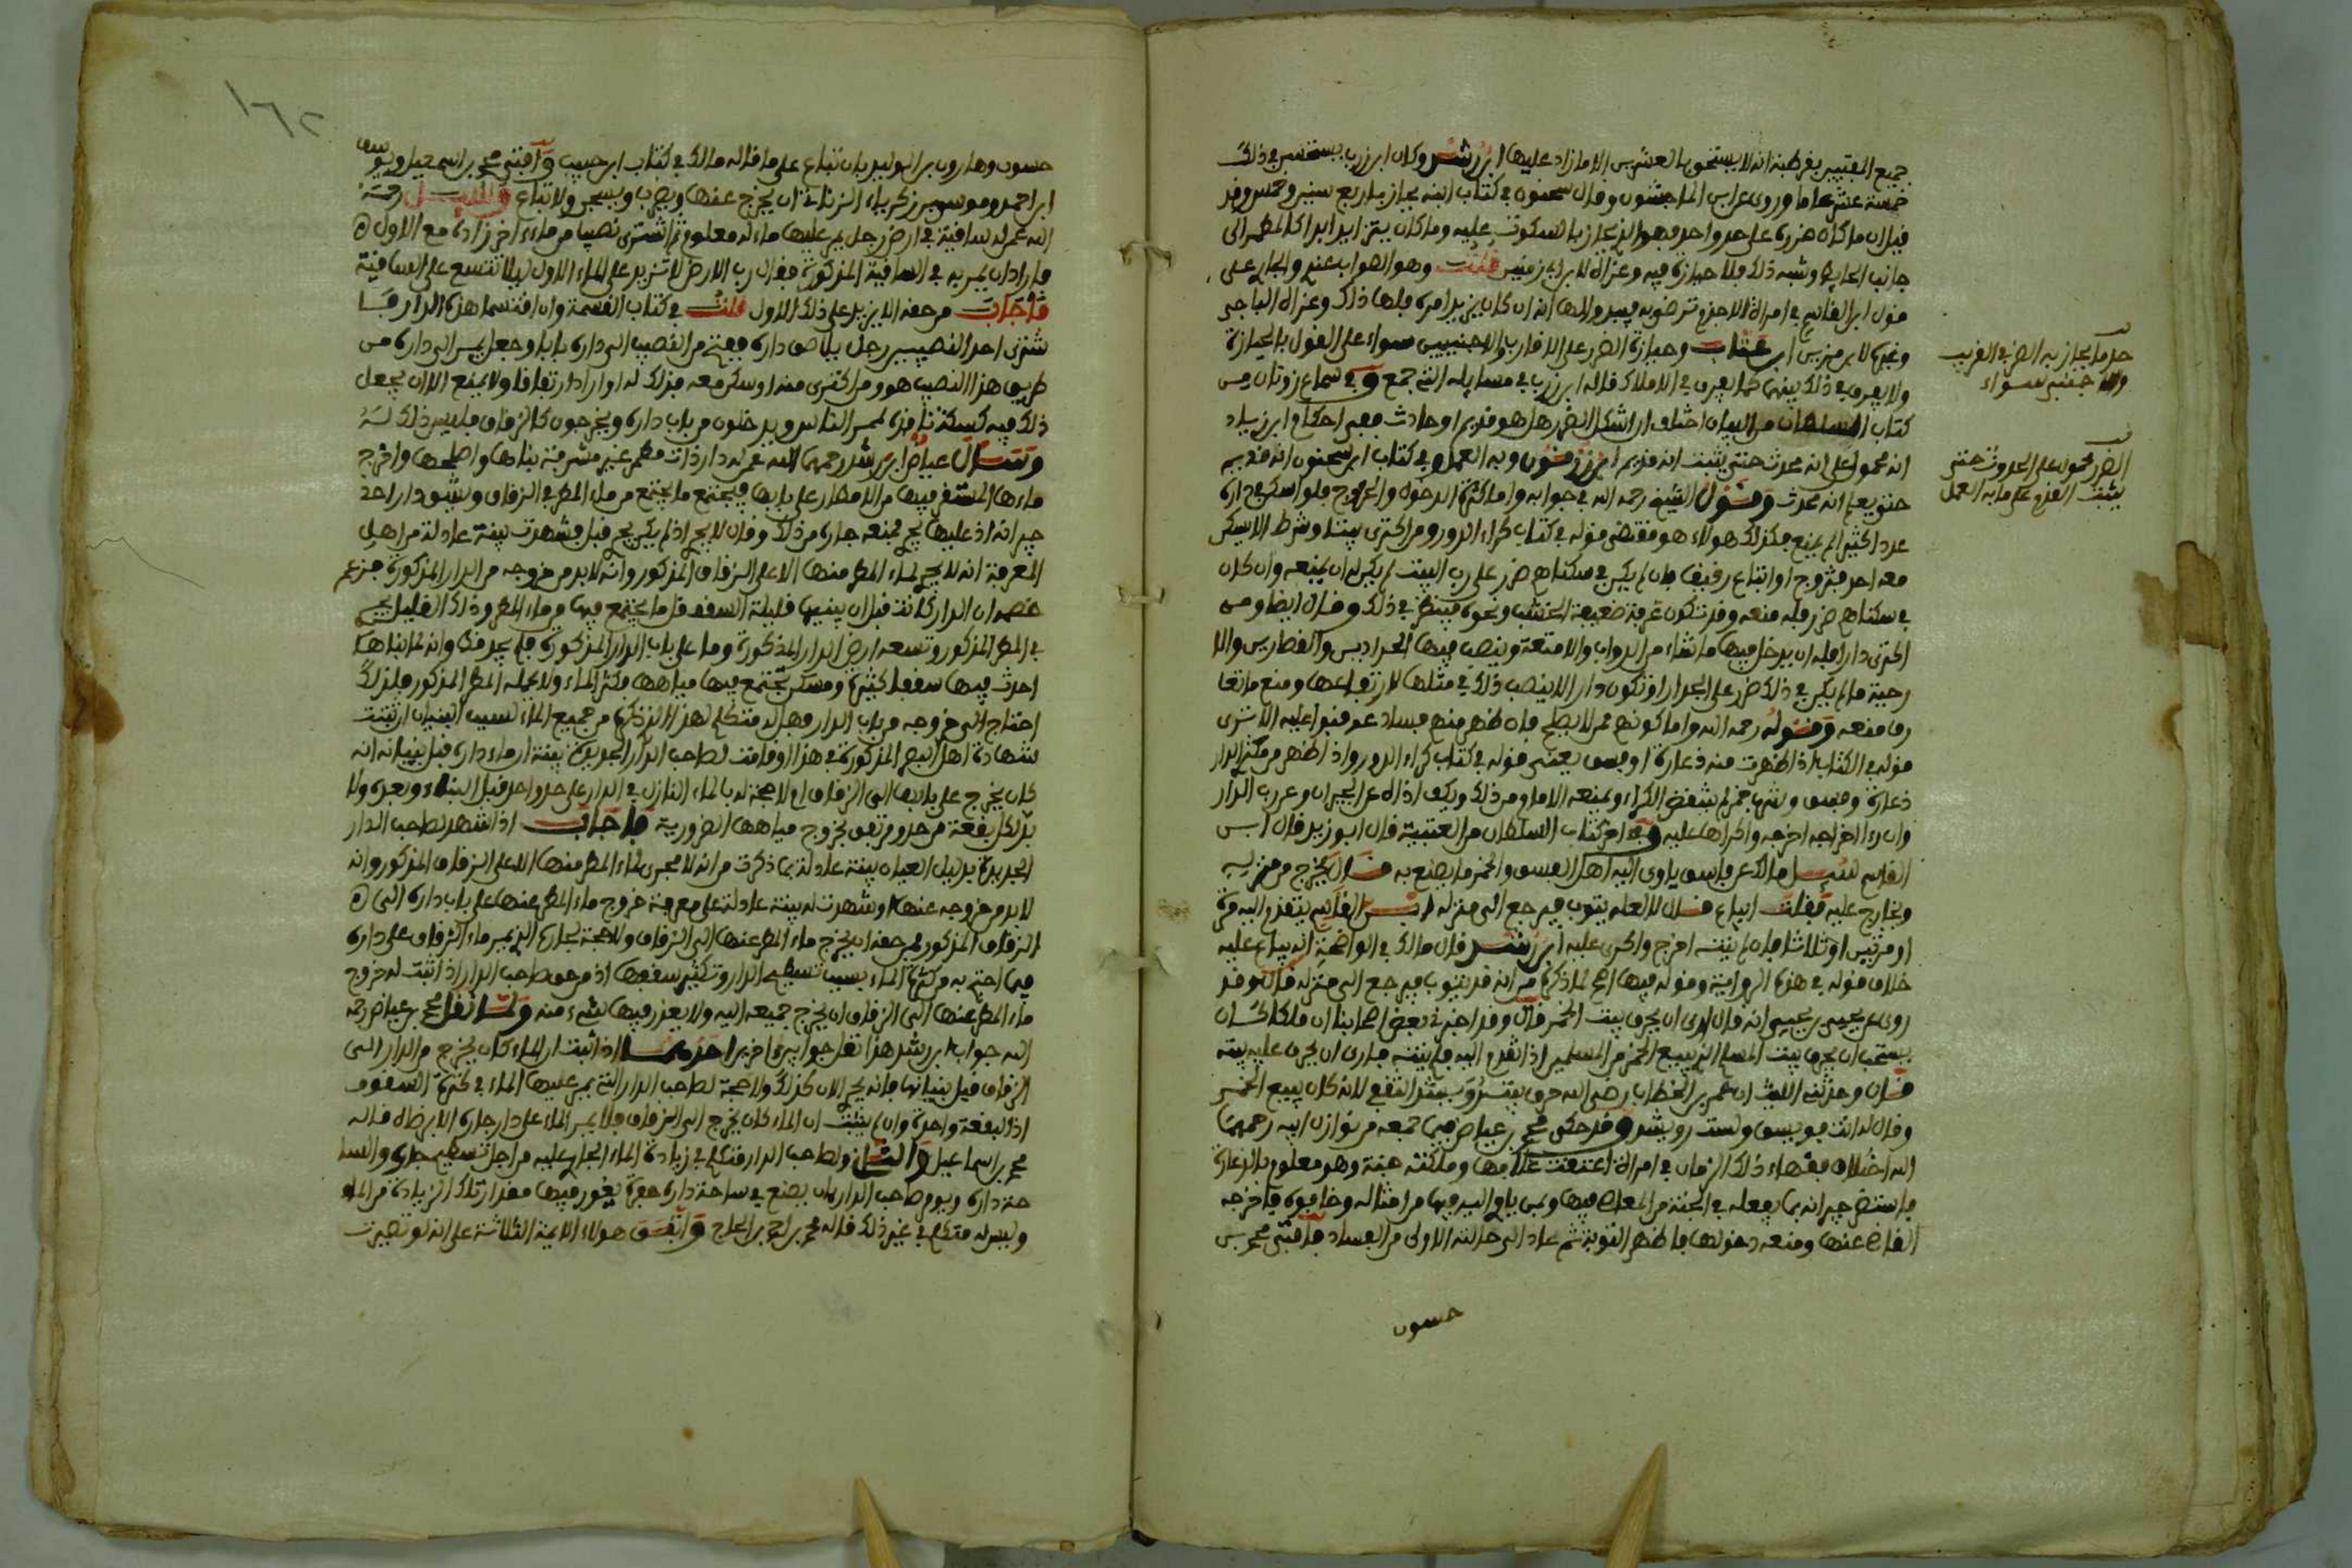 جميع المفتيين بقرطبة انه لا يستحق بالعشرين الا ما زاد عليها ابن رشد وكان ابن زرب يستحسن في ذلك
خمسة عشر عاما وروى عن ابن الماجشون وقال سحنون في كتاب ابنه يحاز باربع سنين وخمس وقد
قيل ان ما كان ضرره على حد واحد فهو الذي يحاز بالسكوت عليه وما كان يتزايد ابدا كالمطمر الى
جانب الحايط وشبه ذلك فلا حيازة فيه وعزاه لابن مزين قلت وهو الصواب عندي والجاري على
قول ابن القاسم في
وغيره لابن مزين ابن عتاب وحيازة الضرر على الاقارب والاجنبيين سواء على القول بالحيازة
ولا يفرق في ذلك بينهما كما يفرق في الاملاك قاله ابن زرب في مسايله التي جمع وفي سماع زونان من
كتاب السلطان من البيان اختلف ان اشكل الضرر هل هو قديم او حادث ففي احكام ابن زياد
انه محمول على انه محدث حتى يثبت انه قديم ابن زرقون وبه العمل وفي كتاب ابن سحنون انه قديم
حتى يعلم انه محدث وقول الشيخ رحمه الله في جوابه واما كثرة الدخول والخروج فلو اسكن في داره
عددا كثيرا لم يمنع فكذلك هولاء هو مقتضى قوله في كتاب كراء الدور ومن اكترى بيتا وشرط الا يسكن
معه احد فتزوج او ابتاع رقيقا فان لم يكن في سكناهم ضرر على رب البيت لم يكن له ان يمنعه وان كان
في سكناهم ضرر فله منعه وقد تكون غرفة ضعيفة الخشب ونحوه فينظر في ذلك وقال ايضا ومن
اكترى دارا فله ان يدخل فيها ما شاء من الدواب والامتعة وينصب فيها الحدادين والقصارين والا
رحية ما لم يكن في ذلك ضرر على الجدار او تكون دار لا ينصب ذلك في مثلها لارتفاعها ومنع ما تعا
رف منعه وقوله رحمه الله واما كونهم ممن لا يصلح فان ظهر منهم فساد عوقبوا عليه الا ترى
قوله في الكتاب اذا ظهرت منه دعارة او فسق يعني قوله في كتاب كراء الدور واذا ظهر من مكتري الدار
دعارة وفسق وشرب خمر لم ينتقض الكراء ويمنعه الامام من ذلك ويكف اذاه عن الجيران وعن رب الدار
وان رءا اخراجه اخرجه واكراها عليه وفي اخر كتاب السلطان من العتبية قال ابو زيد قال ابن
القاسم سئل مالك عن فاسق ياوي اليه اهل الفسق والخمر ما يصنع به قال يخرج من منزله
وتخارج عليه فقلت اتباع قال لا لعله يتوب فيرجع الى منزله ابن القاسم يتقدم اليه مرة
او مرتين او ثلاثا فان لم ينته اخرج واكرى عليه ابن رشد قال مالك في الواضحة انه يباع عليه
خلاف قوله في هذه الرواية وقوله فيها اصح لما ذكره من انه قد يتوب فيرجع الى منزله قال وقد
روى عن يحيى بن يحيى انه قال ارى ان يحرق بيت الخمر قال وقد اخبرني بعض اصحابنا ان مالكا كان
يستحب ان يحرق بيت المسلم الذي يبيع الخمر من المسلمين اذا تقدم اليه فلم ينته فارى ان يحرق عليه بيته
قال وحدثني الليث ان عمر بن الخطاب رضي الله حرق بيت رويشد الثقفي لانه كان يبيع الخمر
وقال له انت فويسق ولست رويشد وقد حكى محمد بن عياض فيما جمعه من نوازل ابيه رحمهما
الله اختلاف فقهاء ذلك الزمان في امراة اعتقت غلامها وملكته جنة وهو معلوم بالدعارة
فاستضر جيرانه بما يفعله في الجنة من المعاصي فيها وبمن ياوي اليه فيها من امثاله وخافوه فاخرجه
القاضي عنها ومنعه دخولها فاظهر التوبة ثم عاد الى حالته الاولى من الفساد فافتى محمد بن
حسون
حد ما يحاز به الضرر القريب
والاجنبي سواء
الضرر محمول على الحدوث حتى
يثبت القدم على ما به العمل
١٦٢
حسون وهارون بن ابو الوليد بان تباع على ما قاله مالك في كتاب ابن حبيب وافتى محمد بن اسمعيل ويوسف
ابن احمد وموسى بن زكرياء الزناتي ان يخرج عنها ويضرب ويسجن ولا تباع وسئل رحمه
الله عمن له ساقية في ارض رجل يمر عليها ماء له معلوم ثم اشترى نصيبا من ماء اخر زاده مع الاول
فاراد ان يمر به في الساقية المذكورة فقال رب الارض لا تزيد على الماء الاول ليلا تتسع على الساقية
فاجاب من حقه الا يزيد على ذلك الاول قلت في كتاب القسمة وان اقتسما هذه الدار فا
شترى احد النصيبين رجل يلاصق داره ففتح من النصيب الى داره بابا وجعل يمر الى داره من
طريق هذا النصيب هو ومن اكترى منه او سكن معه فذلك له ان اراد ارتفاقا ولا يمنع الا ان يجعل
ذلك فيه كسكة نافذة لممر الناس ويدخلون من باب داره ويخرجون كالزقاق فليس ذلك له
وسال عياض ابن رشد رحمهما الله عمن له دار ذات مطمر غير مشرفة بناها واصلحها واخرج
ماءها المستقر فيها من الامطار على بابها فيجتمع ما يجتمع من ماء المطر في الزقاق ويشق دار احد
جيرانه اذ عليها يجري فمنعه جاره من ذلك وقال لا يجري اذ لم يكن يجري قبل فشهدت بينة عادلة من اهل
المعرفة انه لا يجري لماء المطر منها الا على الزقاق المذكور وانه لابد من خروجه من الدار المذكورة فزعم
خصمه ان الدار كانت قبل ان يبنيها قليلة السقف قل ما يجتمع فيها من ماء المطر وذلك القليل يجري
في المطمر المذكور وتسعه ارض الدار المذكورة وما على باب الدار المذكورة فلم يجد فكا وانه لما بناها
احدث فيها سقفا كثيرة ومسكن تجتمع فيها مياهها فكثر الماء ولا يحمله المطمر المذكور فلذلك
احتاج الى خروجه من باب الدار فهل له متكلم لهذا الذي ذكره من جميع الماء لسبب البنيان ان ثبتت
شهادة اهل البصر المذكورة في هذا او قامت لصاحب الدار الجديدة بينة ان ماء داره قبل بنيانه انه
كان يخرج على بابها الى الزقاق او لا حجة له بالماء النازل في الدار على حد واحد قبل البناء وبعده ولا
بد لكل بقعة من حد ومرتفق بخروج مياهها الضرورية فاجاب اذا شهد لصاحب الدار
الجديدة بدليل العيان بينة عادلة بما ذكرت من انه لا مجرى لماء المطر منها الا على الزقاق المذكور وانه
لابد من خروجه عنها او شهدت له بينة عادلة على معرفة خروج ماء المطر عنها على باب داره الى
الزقاق المذكور فمن حقه ان يخرج ماء المطر عنها الى الزقاق ولا حجة لجاره الذي يمر ماء الزقاق على داره
فيما احتج به من كثرة الماء بسبب تسطيح الدار وتكثير سقفها اذ من حق صاحب الدار اذا ثبت له خروج
ماء المطر عنها الى الزقاق ان يخرج جميعه اليه ولا يغور فيها شيء منه ولما نقل محمد بن عياض رحمه
الله جواب ابن رشد هذا نقل جوابين اخرين احدهما اذا ثبت ان الماء كان يخرج من الدار الى
الزقاق قبل بنيانها فانه يجري الان كذلك ولا حجة لصاحب الدار التي يمر عليها الماء في كثرة السقوف
اذ البقعة واحدة وان لم يثبت ان الماء كان يخرج الى الزقاق فلا يمر الماء على دار جاره الا برضاه قاله
محمد بن اسماعيل والثاني لصاحب الدار متكلم في زيادة الماء الجاري عليه من اجل تسطيح جاره والسا
حة داره ويومر صاحب الدار بان يصنع في ساحة داره حفرة يغور فيها مقدار تلك الزيادة من الماء
وليس له متكلم في غير ذلك قاله محمد بن احمد بن الحاج واتفق هولاء الايمة الثلاثة على انه لو تصيرت